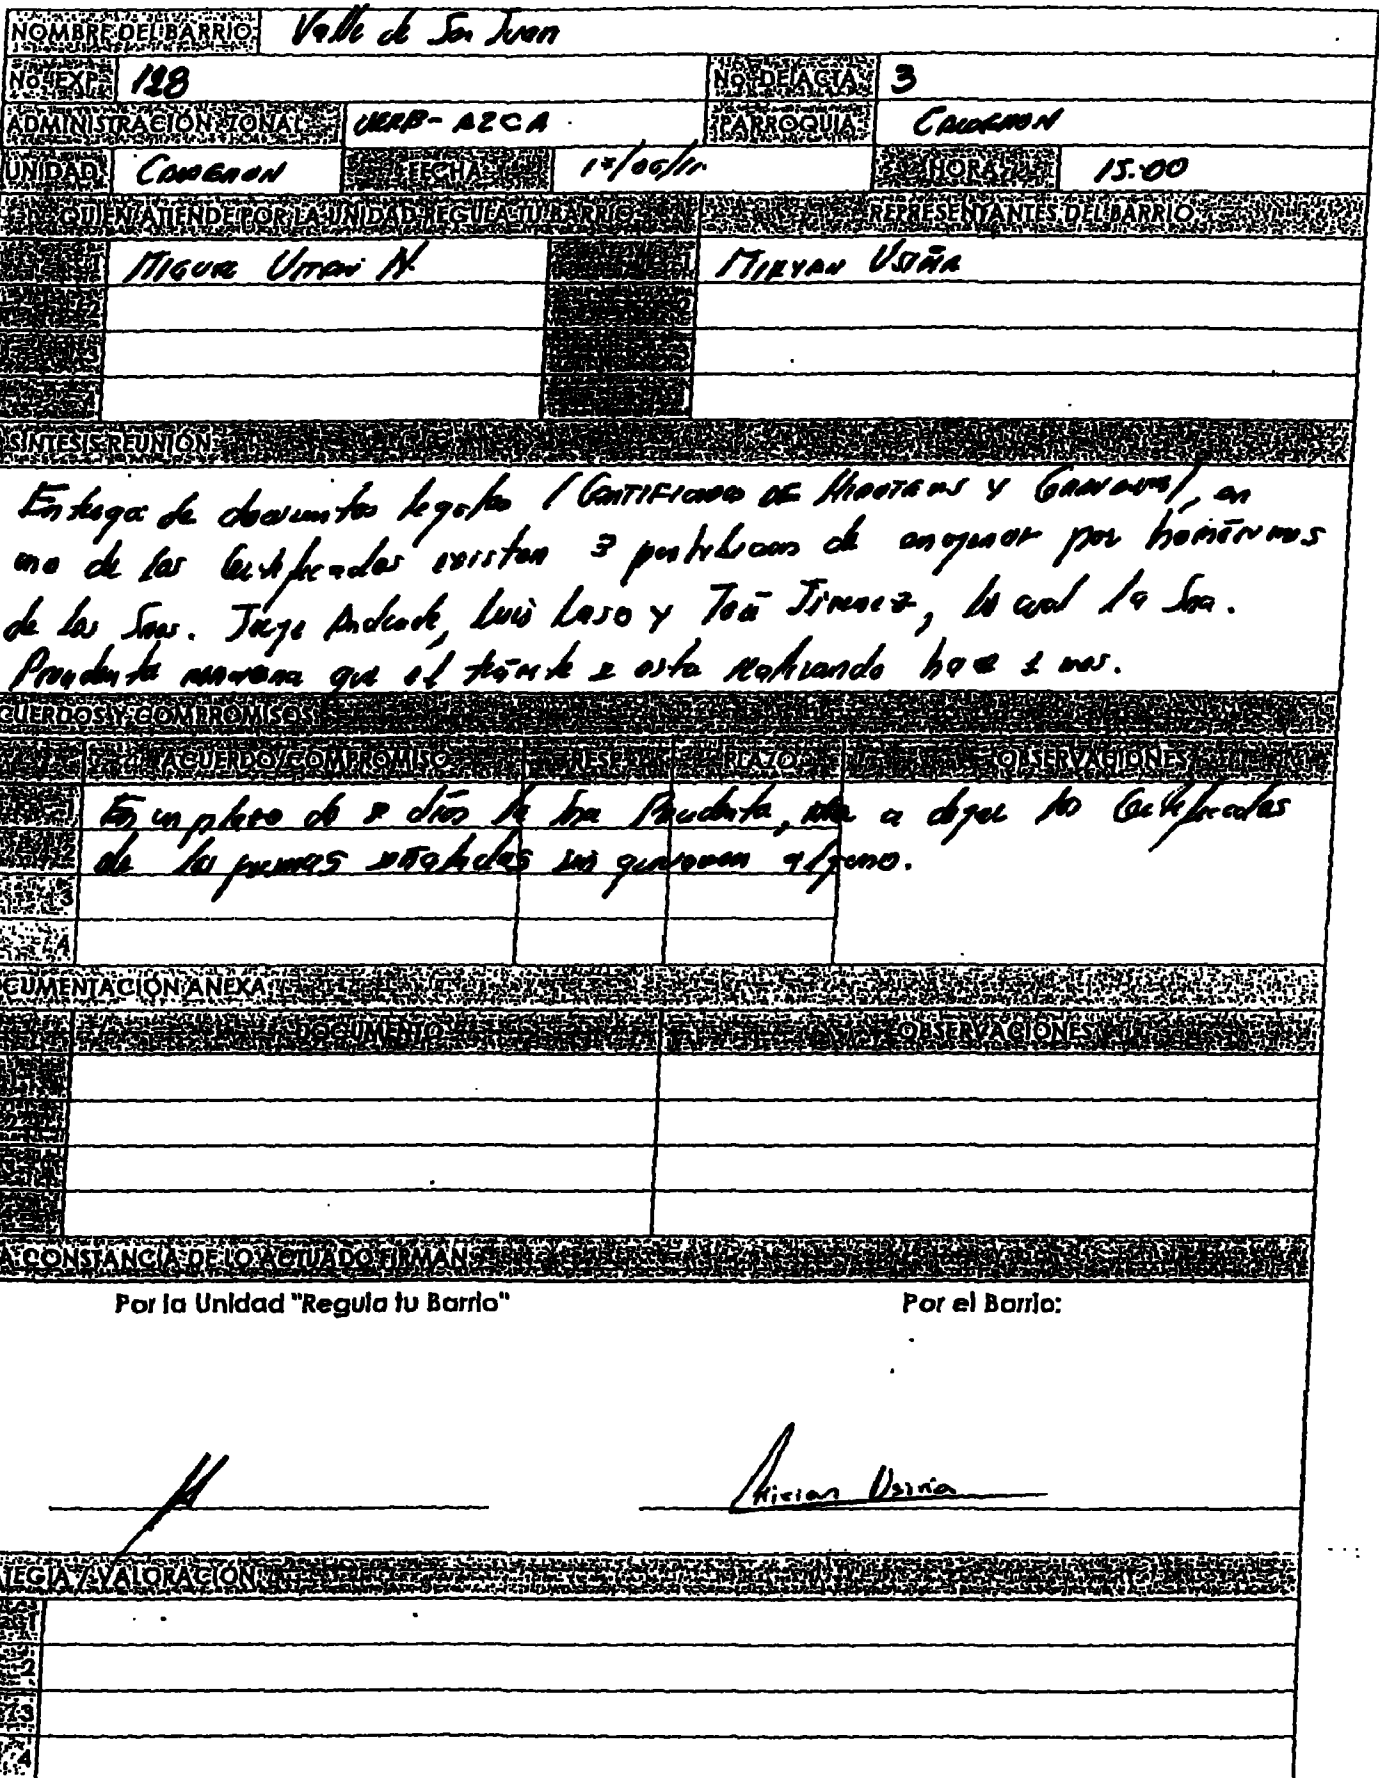 NOMBRE DEL BARRIO: Valle de San Juan
No. EXP. 128 No. DE ACTA 3
ADMINISTRACIÓN ZONAL: UERB-AZCA PARROQUIA: CALDERON
UNIDAD: CALDERON FECHA: HORA: 15:00
QUIEN ATIENDE POR LA UNIDAD REGULA TU BARRIO REPRESENTANTES DEL BARRIO
1 MIGUEL N. 1 MIRYAN USIÑA
2 2
3 3
4 4
SINTESIS REUNIÓN:
Entrega de documentos legales (CERTIFICADO DE HIPOTECAS Y GRAVAMENES), en
uno de los Certificados existen 3 prohibiciones de enajenar por homónimos
de los Sres. Jorge Andrade, Luis Laso y José Jimenez, lo cual la Sra.
Presidenta que el trámite se esta realizando hace 1 mes.
CUERDOS Y COMPROMISOS
ACUERDO/COMPROMISO RESP. PLAZO OBSERVACIONES
En un plazo de 8 días la Sra Presidenta, a dejar los Certificados
de las señaladas sin gravamen alguno.
3
4
CUMENTACIÓN ANEXA
DOCUMENTO OBSERVACIONES
A CONSTANCIA DE LO ACTUADO FIRMAN
Por la Unidad "Regula tu Barrio" Por el Barrio:
Mirian Usiña
TEGIA / VALORACIÓN
1
2
3
4